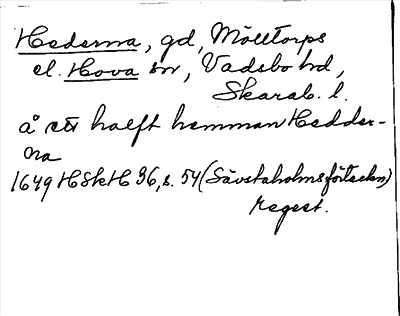 Hederna, gd, Mölltorps
el. Hova sn, Vadsbo hd,
Skarab. l.
å ett halft hemman Hedder-
na
1649 HSkH 36, s. 54 (Sävstaholmsförteckn)
regest.